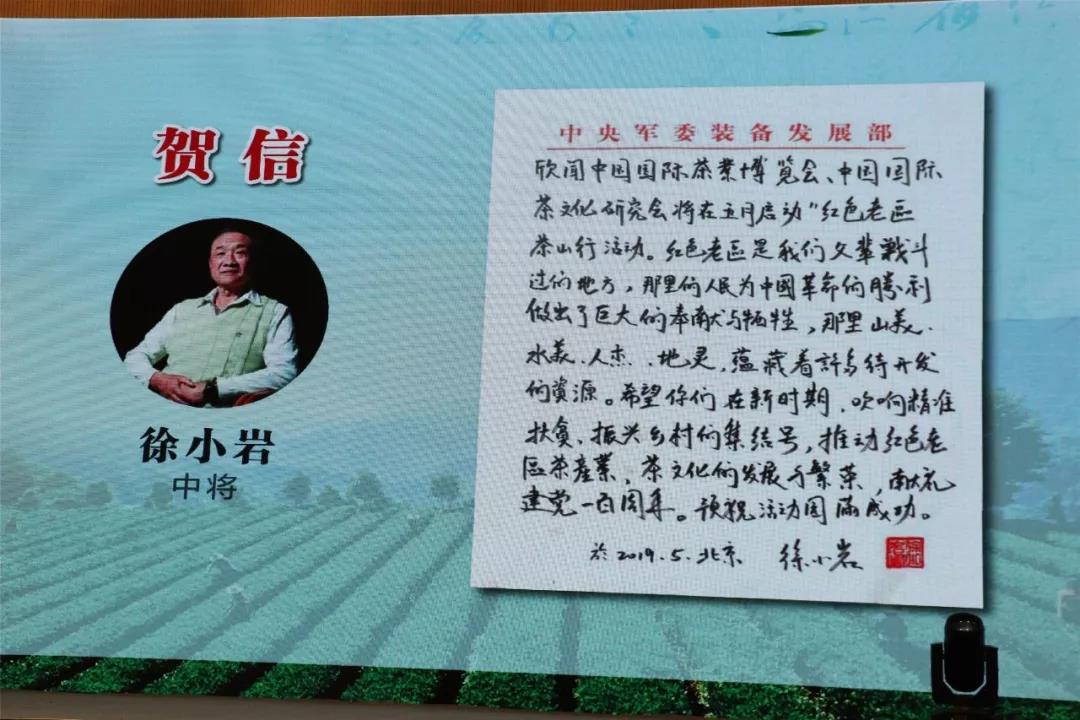 贺信
徐小岩
中将
中央军委装备发展部
欣闻中国国际茶业博览会、中国国际
茶文化研究会将在五月启动"红色老區
茶山行活动。红色老區是我们父辈戰斗
过的地方，那里的人民为中國革命的勝利
做出了巨大的奉献与牺牲，那里山美、
水美、人杰、地灵，蕴藏着許多待开发
的资源。希望你们在新时期，吹响精准
扶贫、振兴乡村的集结号，推动红色老
區茶產業、茶文化的发展与繁荣，献礼
建党一百周年。预祝活动圆满成功。
於2019.5.北京 徐小岩